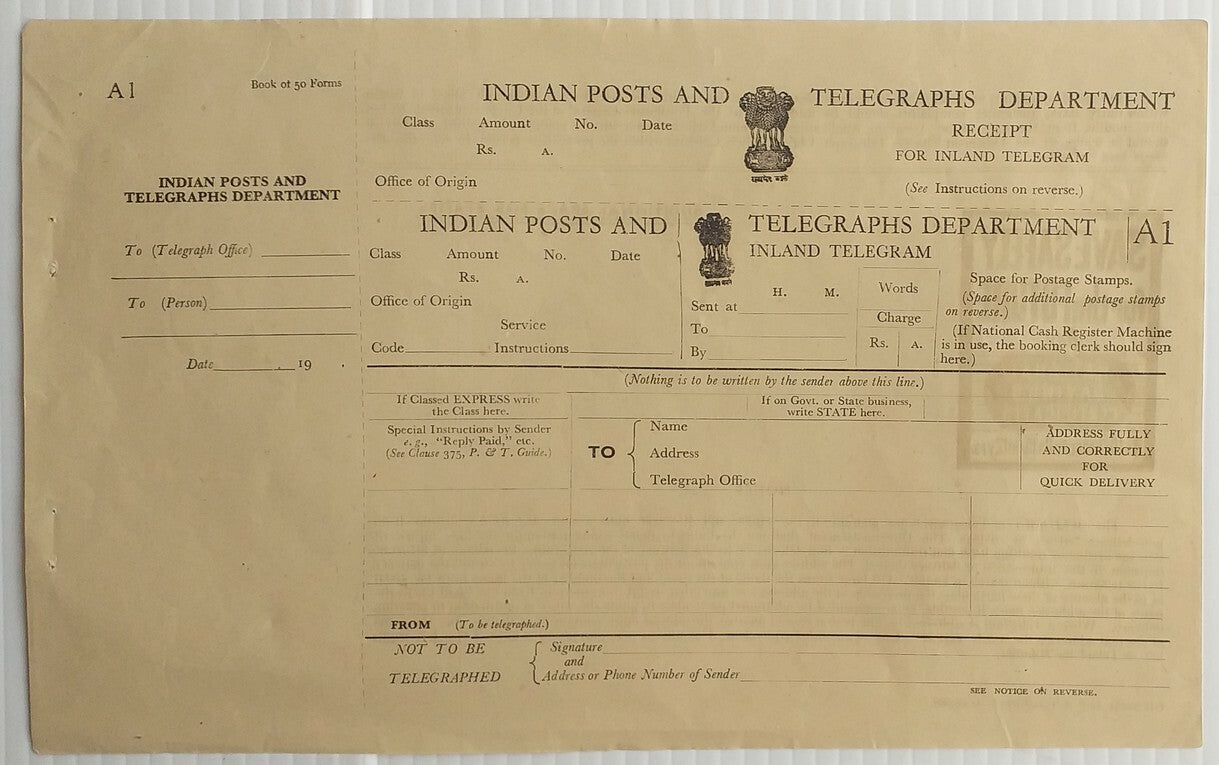 A1
Book of 50 Forms
INDIAN POSTS AND
TELEGRAPHS DEPARTMENT
To (Telegraph Office)
To (Person)
Date 19
INDIAN POSTS AND TELEGRAPHS DEPARTMENT
Class Amount No. Date
RECEIPT
Rs. A.
FOR INLAND TELEGRAM
Office of Origin
(See Instructions on reverse.)
सत्यमेव जयते
INDIAN POSTS AND TELEGRAPHS DEPARTMENT
A1
INLAND TELEGRAM
Class Amount No. Date
Rs. A.
Office of Origin
Service
Code Instructions
सत्यमेव जयते
H. M.
Sent at
To
By
Words
Charge
Rs. A.
Space for Postage Stamps.
(Space for additional postage stamps
on reverse.)
(If National Cash Register Machine
is in use, the booking clerk should sign
here.)
(Nothing is to be written by the sender above this line.)
If Classed EXPRESS write
the Class here.
If on Govt. or State business,
write STATE here.
Special Instructions by Sender
e.g., "Reply Paid," etc.
(See Clause 375, P. & T. Guide.)
TO
Name
Address
Telegraph Office
ADDRESS FULLY
AND CORRECTLY
FOR
QUICK DELIVERY
FROM (To be telegraphed.)
NOT TO BE
TELEGRAPHED
Signature
and
Address or Phone Number of Sender
SEE NOTICE ON REVERSE.